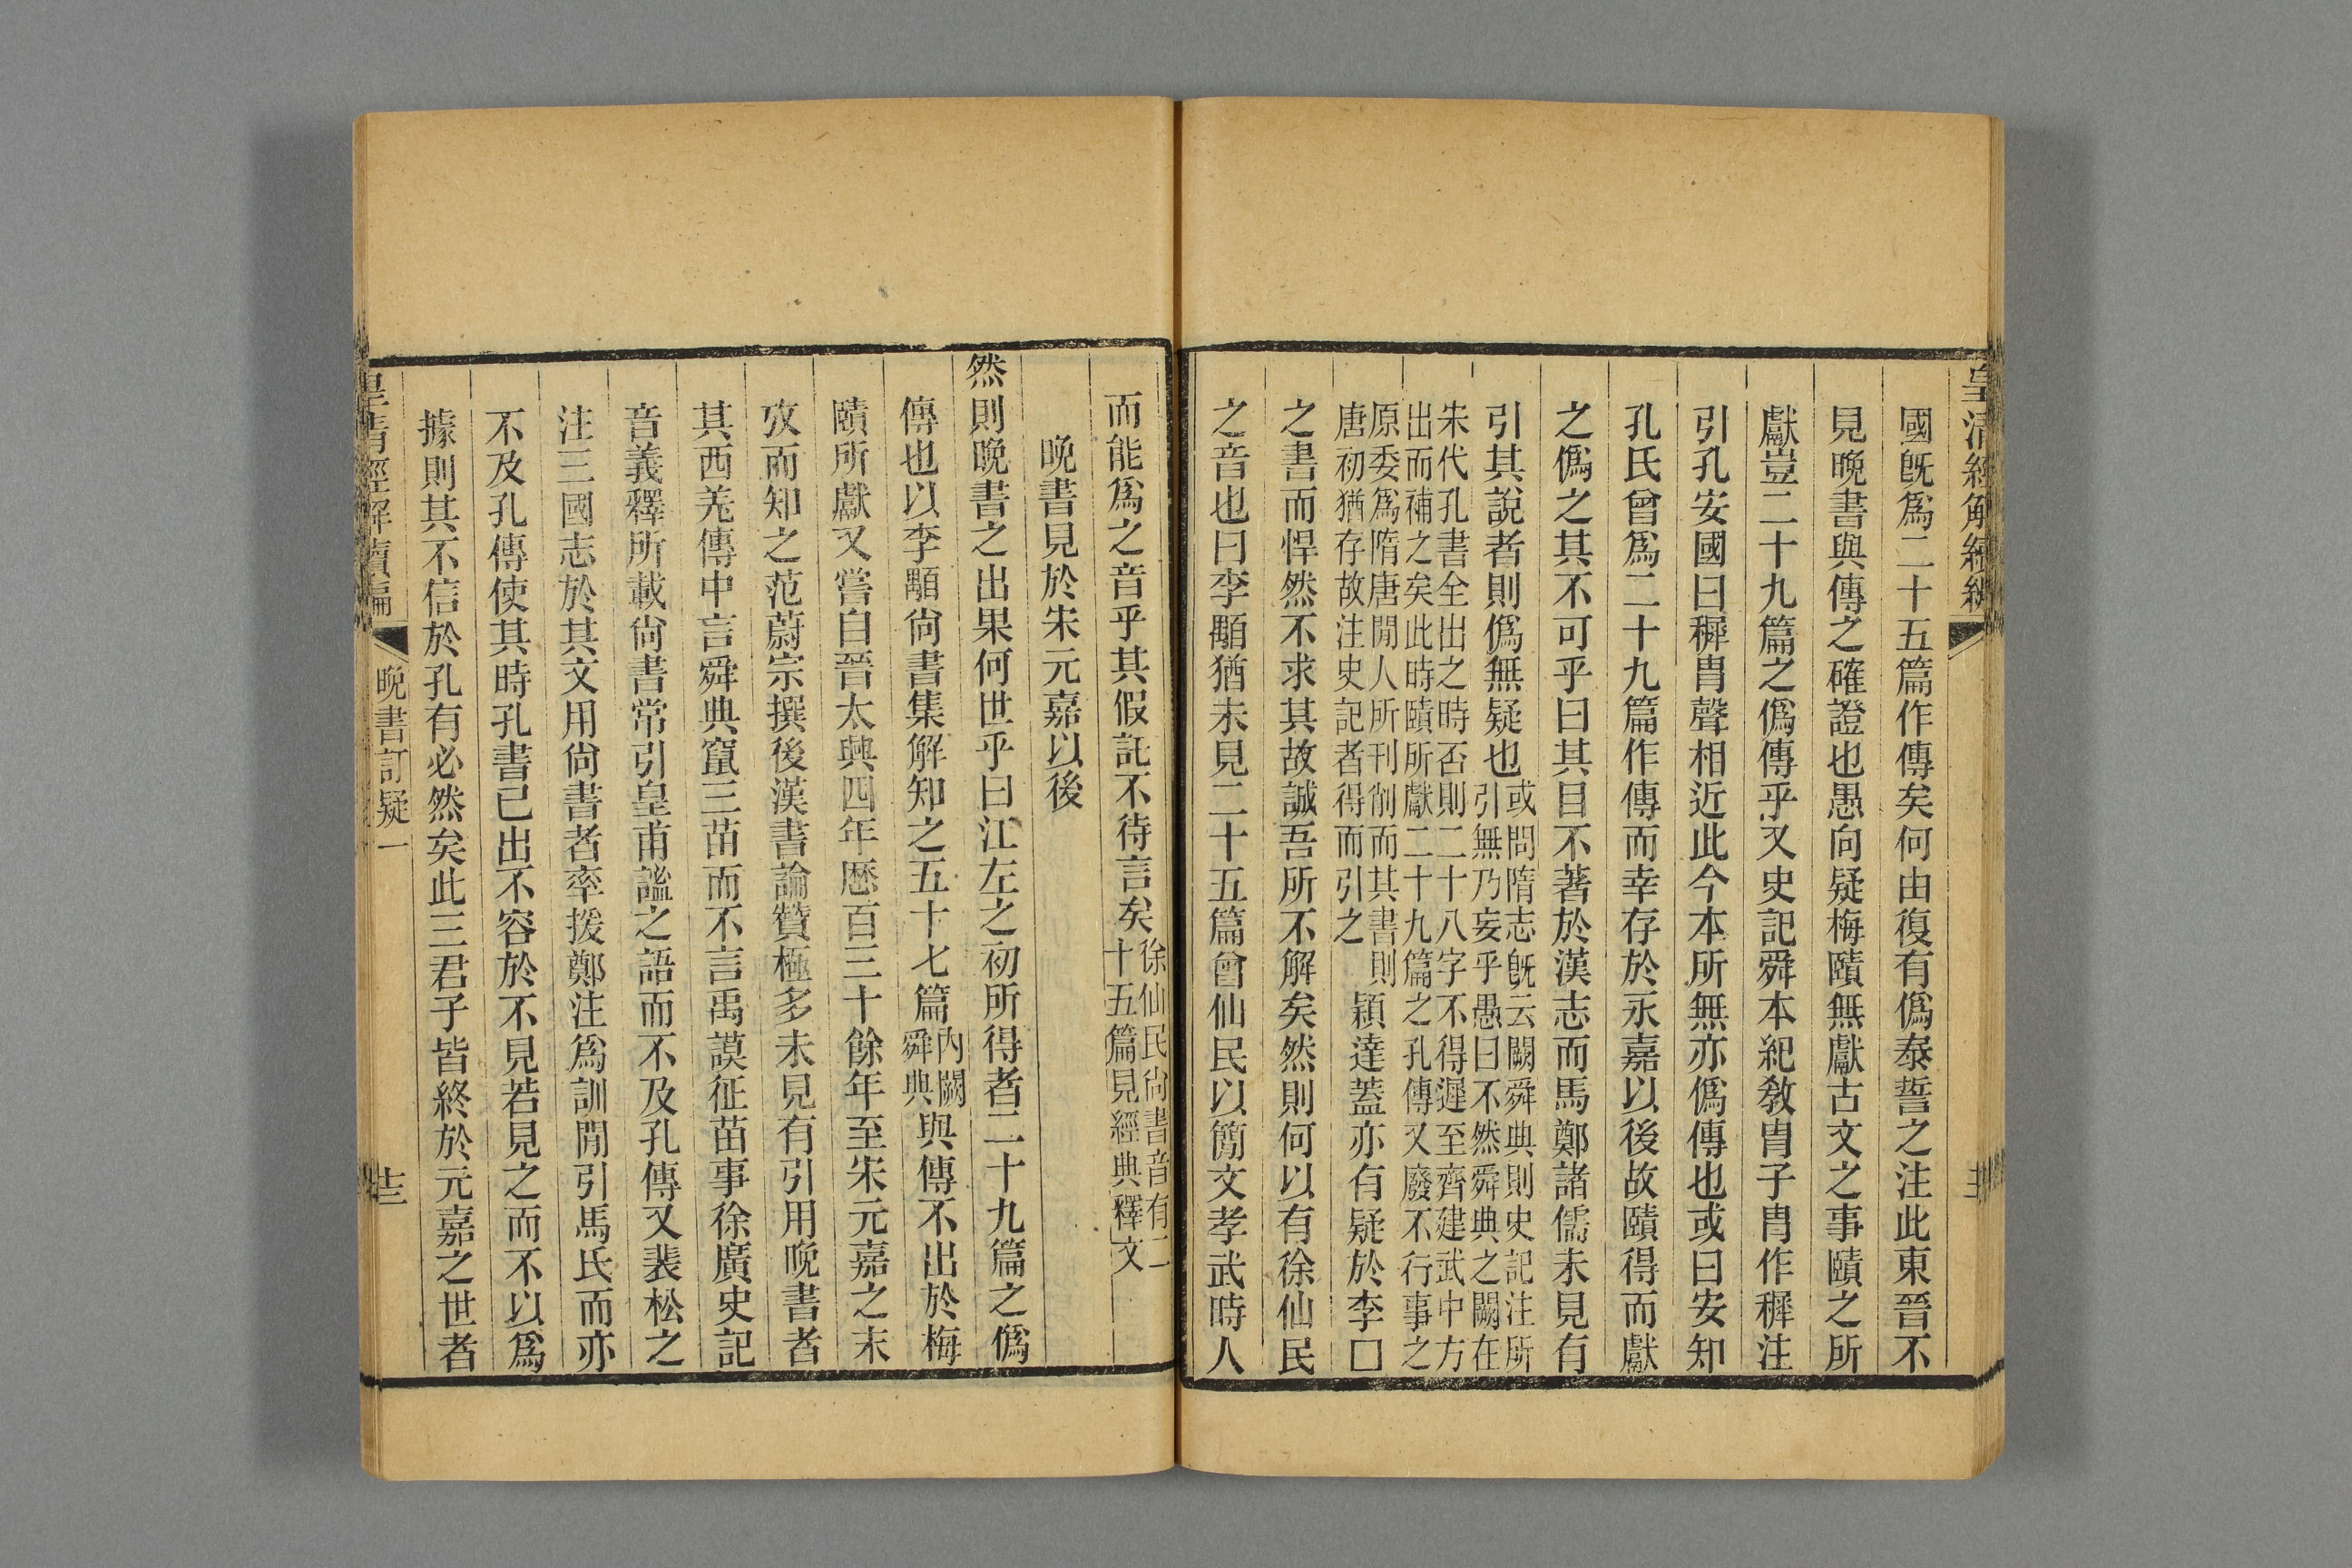 皇清經解續編
國旣爲二十五篇作傳矣何由復有僞泰誓之注此東晉不
見晚書與傳之確證也愚向疑梅賾無獻古文之事賾之所
獻豈二十九篇之僞傳乎又史記舜本紀敎胄子胄作穉注
引孔安國曰穉胄聲相近此今本所無亦僞傳也或曰安知
孔氏曾爲二十九篇作傳而幸存於永嘉以後故賾得而獻
之僞之其不可乎曰其目不著於漢志而馬鄭諸儒未見有
引其說者則僞無疑也
或問隋志旣云闕舜典則史記注所
引無乃妄乎愚曰不然舜典之闕在
朱代孔書全出之時否則二十八字不得遲至齊建武中方
出而補之矣此時賾所獻二十九篇之孔傳又廢不行事之
原委爲隋唐閒人所刊削而其書則
唐初猶存故注史記者得而引之
穎達蓋亦有疑於李□
之書而悍然不求其故誠吾所不解矣然則何以有徐仙民
之音也曰李顒猶未見二十五篇曾仙民以簡文孝武時人
而能爲之音乎其假託不待言矣
徐仙民尙書音有二
十五篇見經典釋文
晚書見於宋元嘉以後
然則晚書之出果何世乎曰江左之初所得者二十九篇之僞
傳也以李顒尙書集解知之五十七篇
內闕
舜典
與傳不出於梅
賾所獻又嘗自晉太興四年歷百三十餘年至宋元嘉之末
攷而知之范蔚宗撰後漢書論贊極多未見有引用晚書者
其西羌傳中言舜典竄三苗而不言禹謨征苗事徐廣史記
音義釋所載尙書常引皇甫謐之語而不及孔傳又裴松之
注三國志於其文用尙書者率援鄭注爲訓閒引馬氏而亦
不及孔傳使其時孔書已出不容於不見若見之而不以爲
據則其不信於孔有必然矣此三君子皆終於元嘉之世者
皇清經解續編
晚書訂疑一